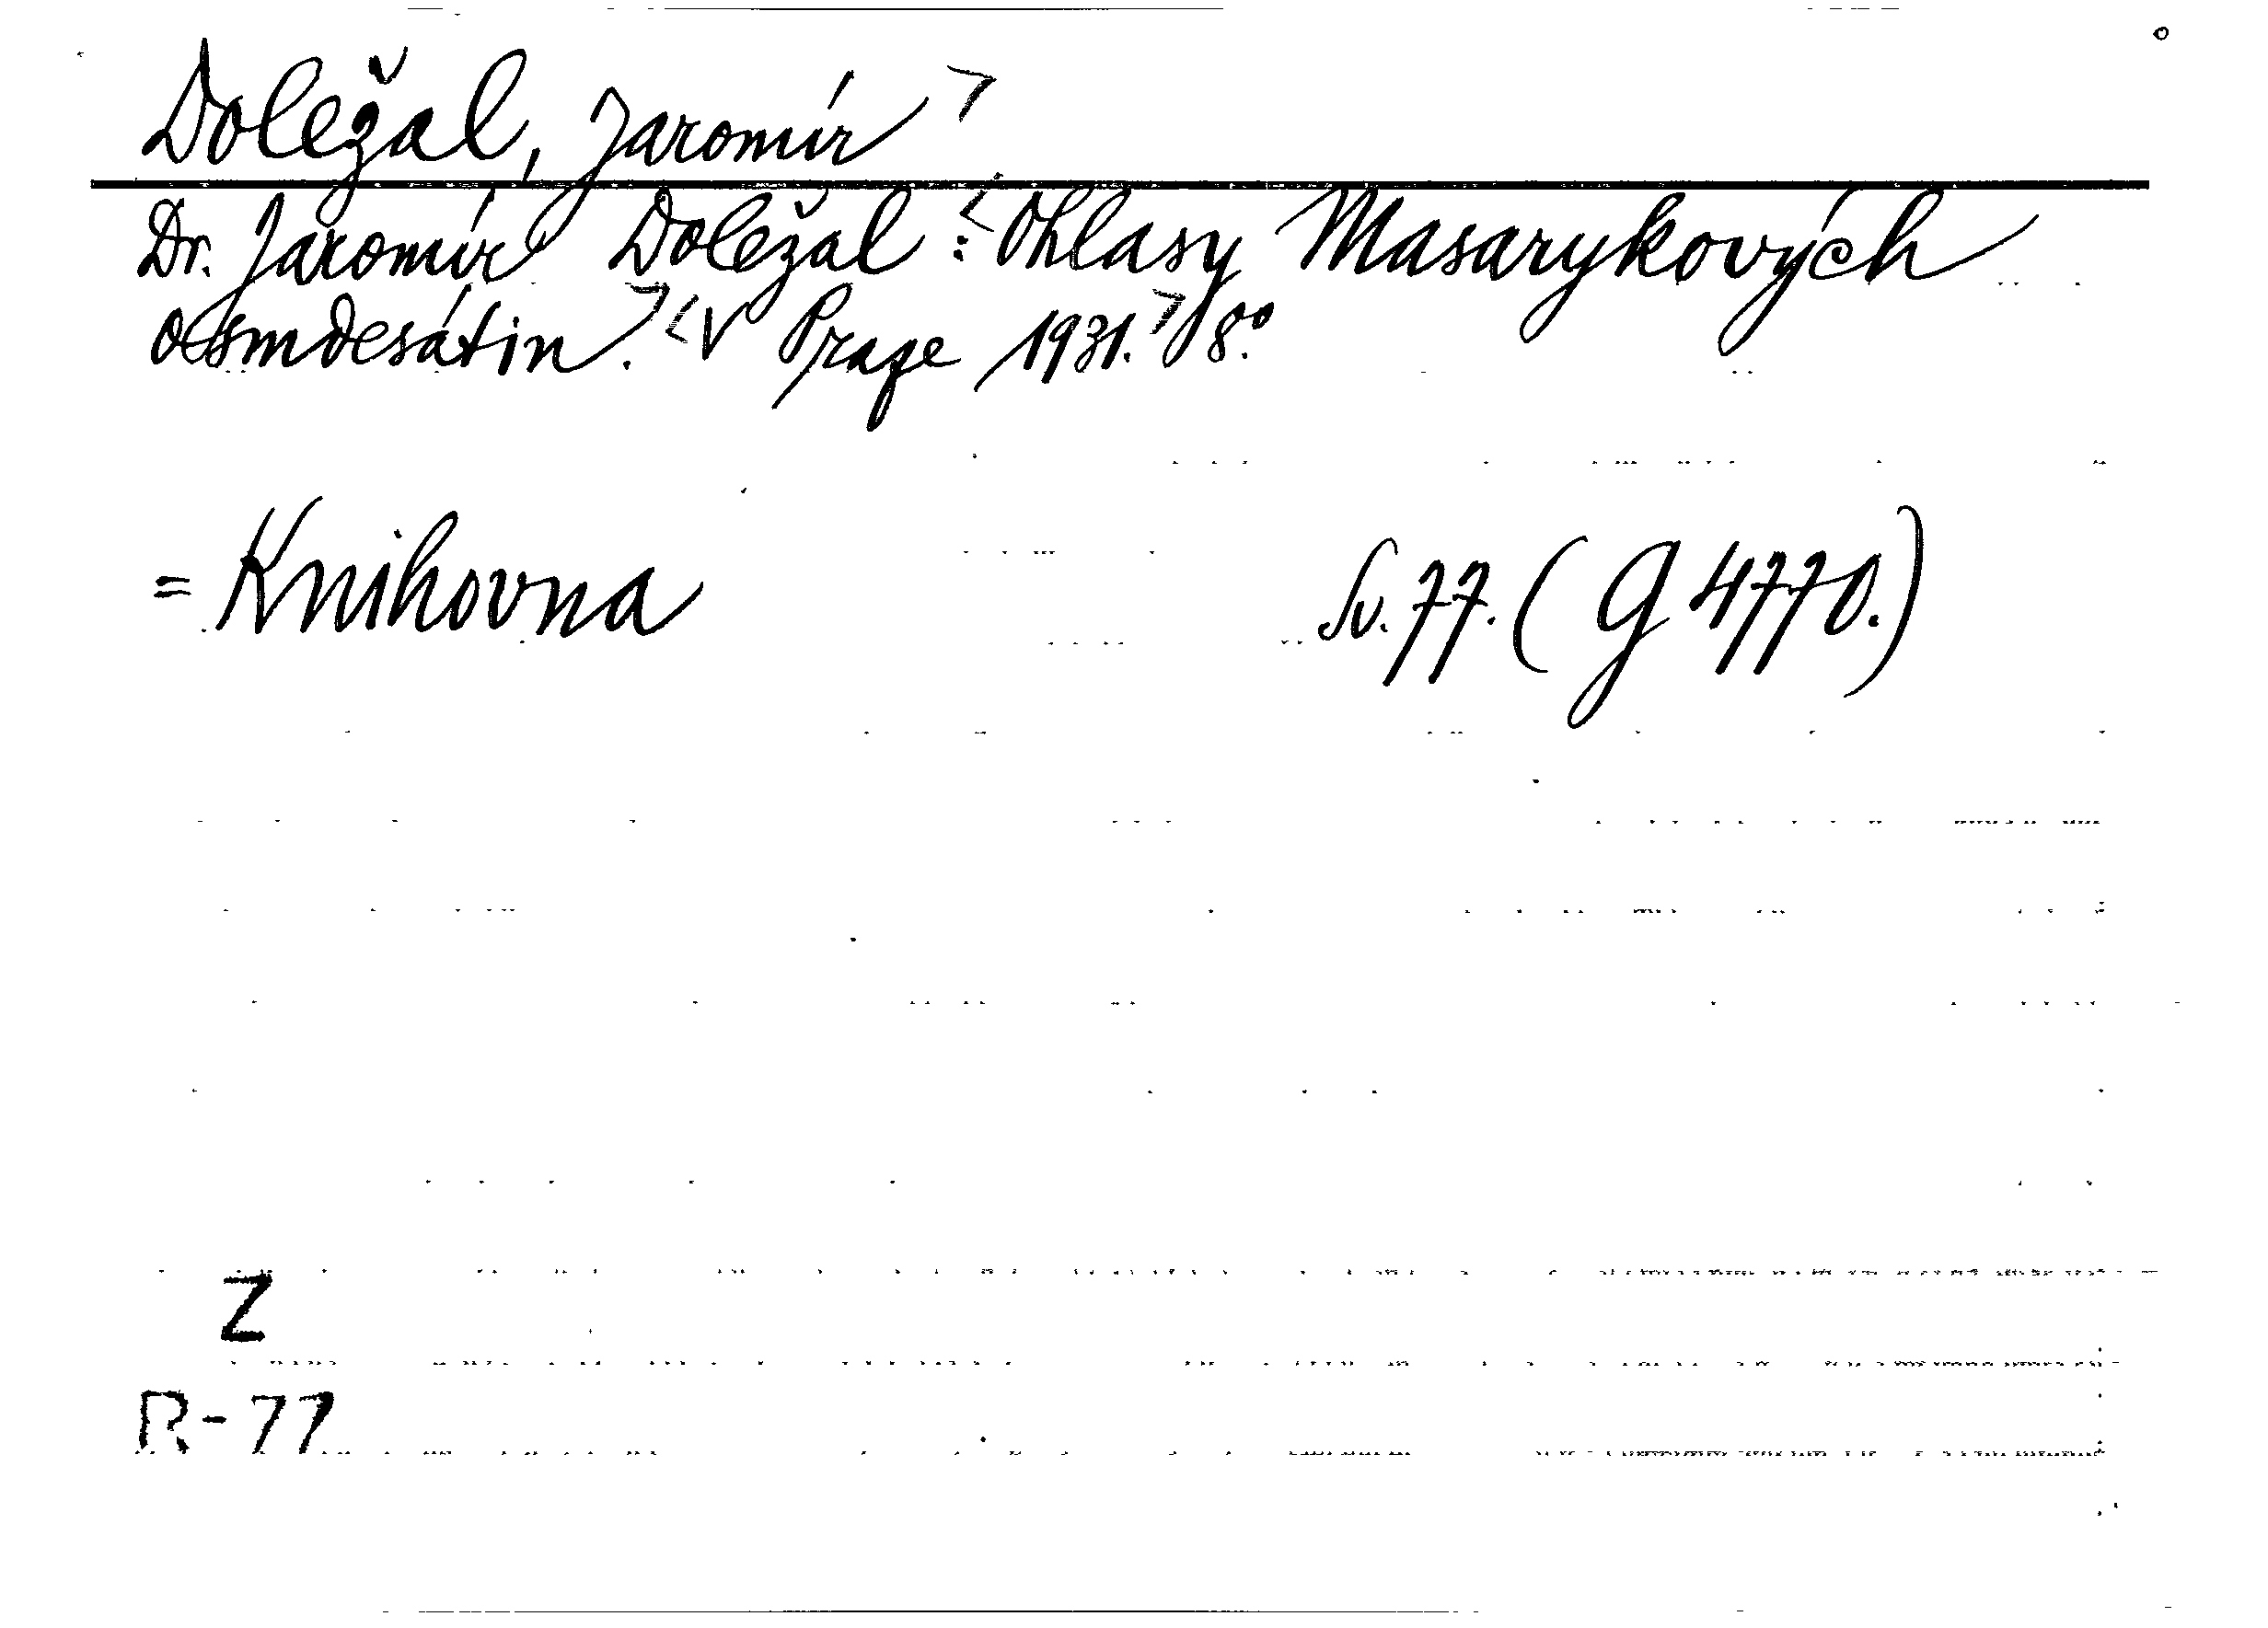 Doležal, Jaromír >
Dr. Jaromír Doležal: <Ohlasy Masarykových
osmdesátin.> <V Praze 1931.> 8°.
= Knihovna Sv. 77. (G 4770.)
Z
R-77